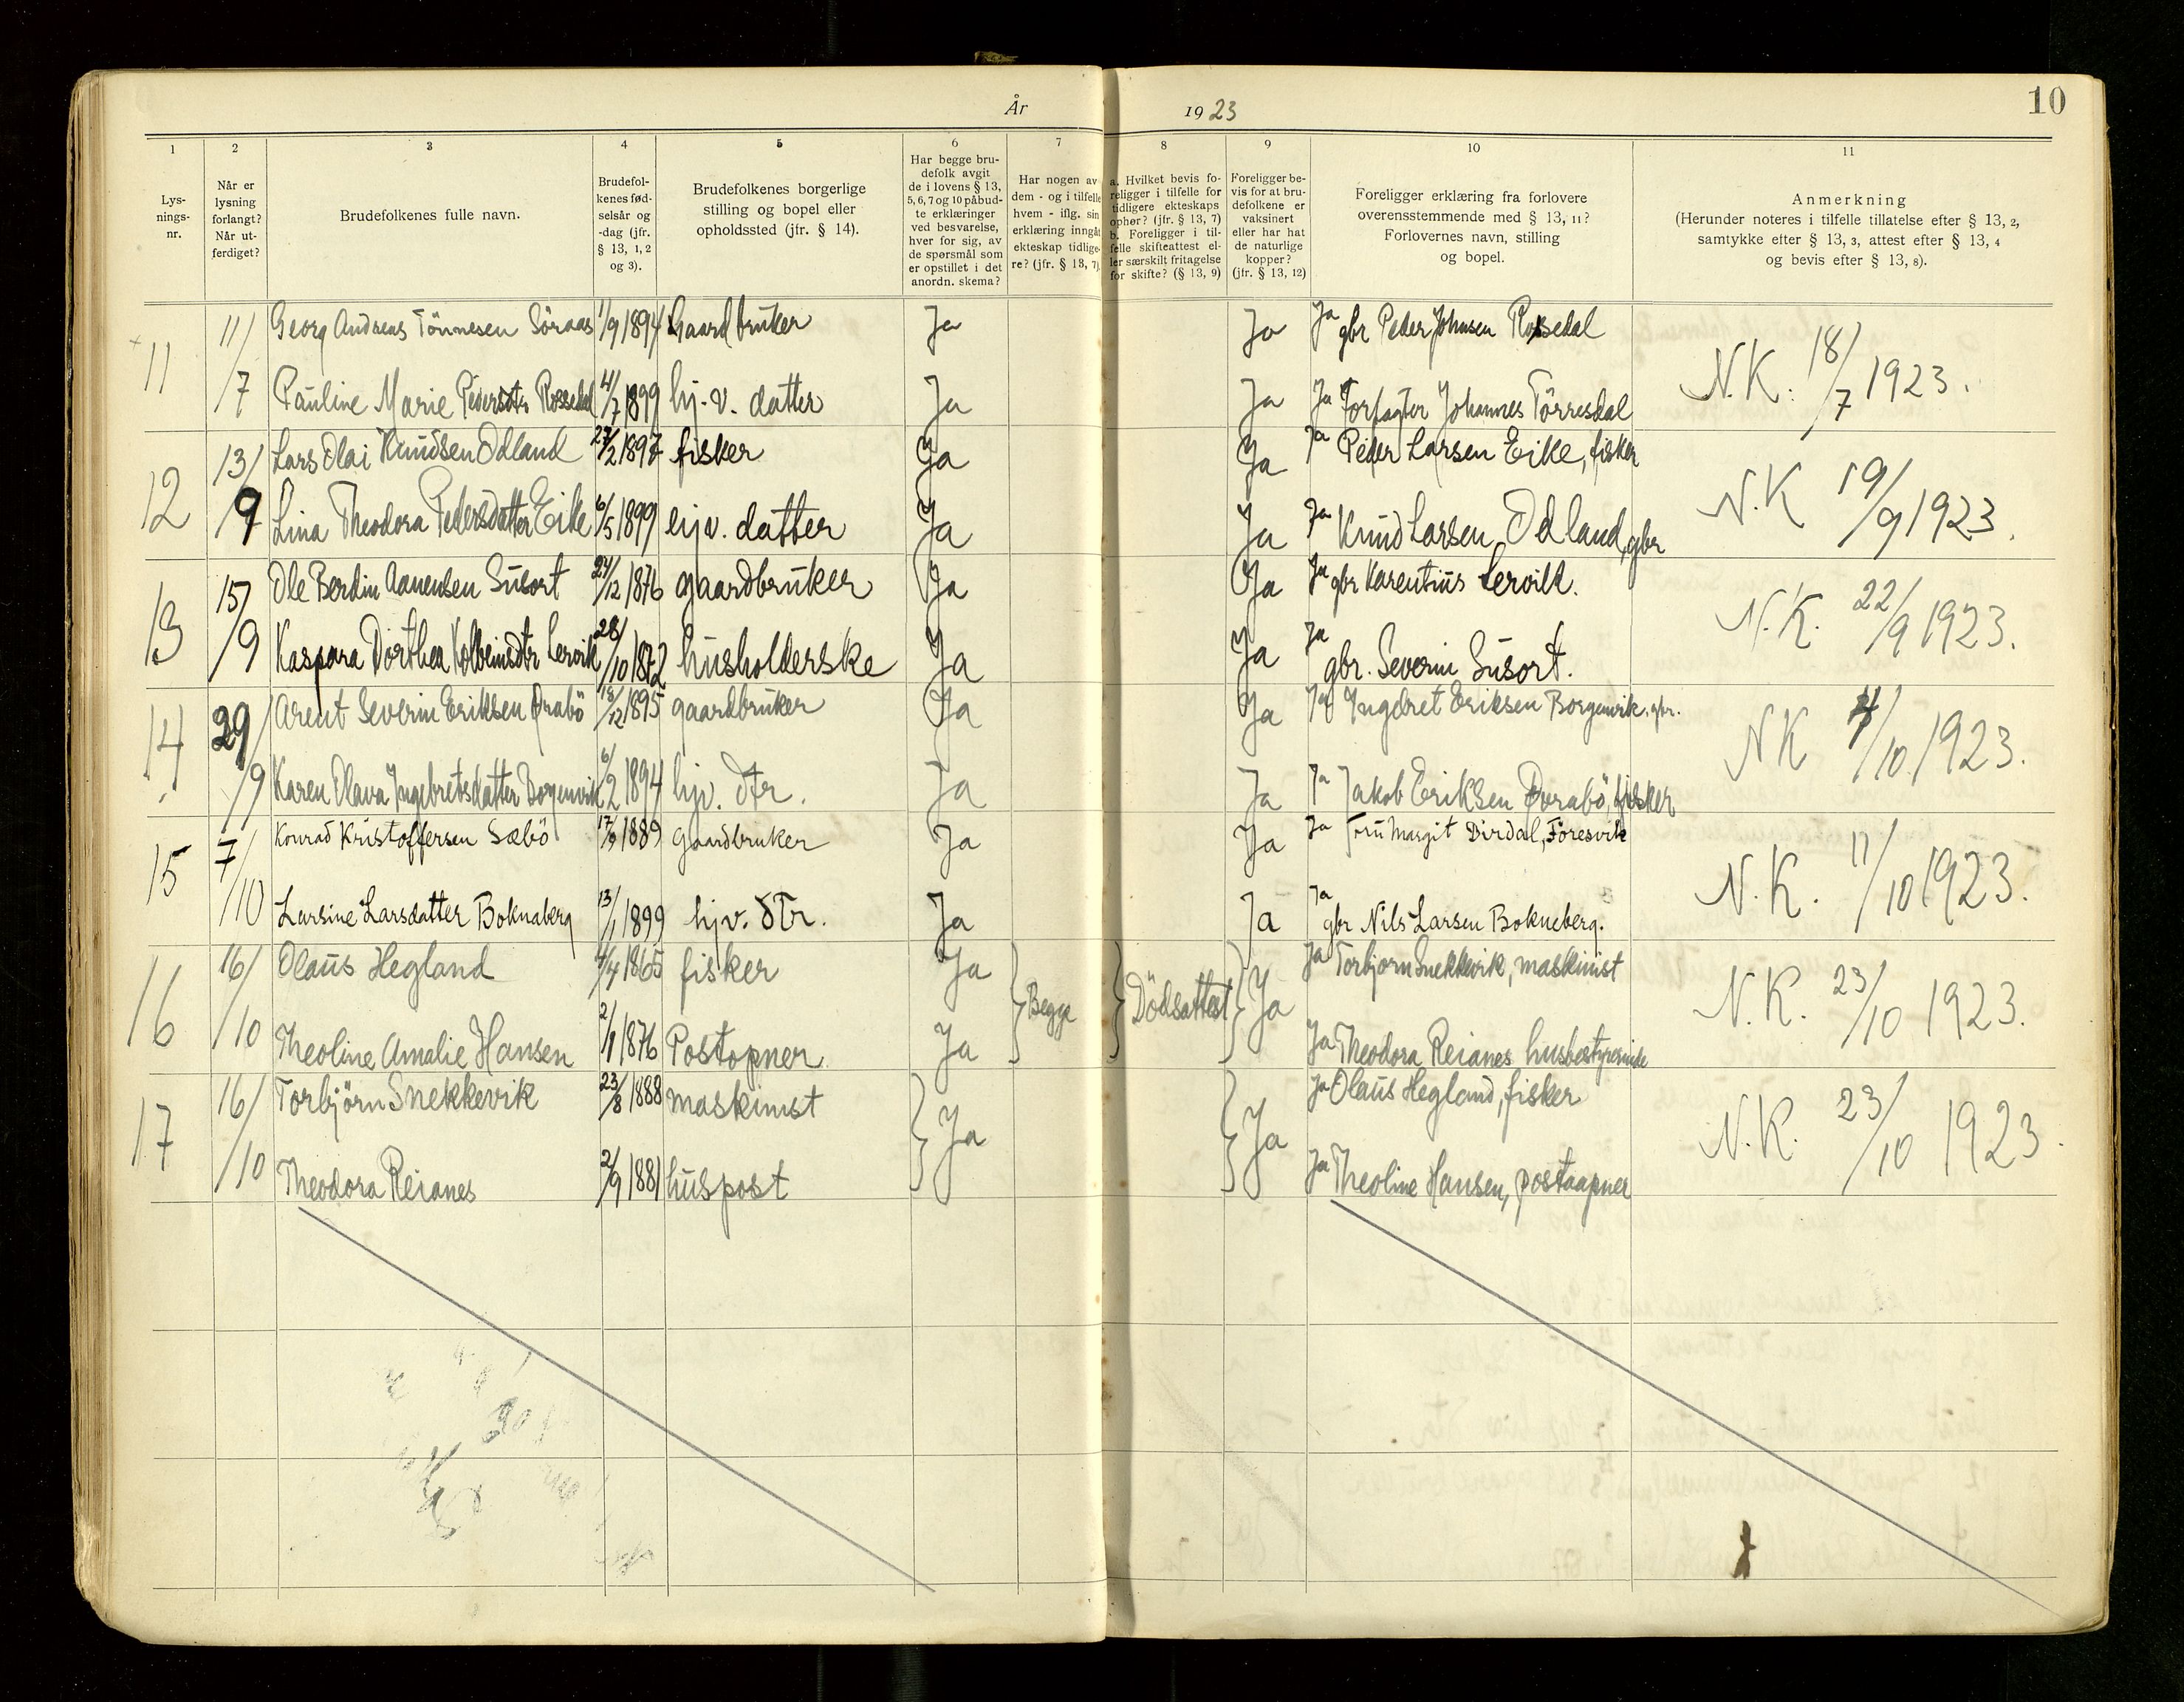 År 1923
10
1 2 3 4 5 6 7 8 9 10 11
Lys-
nings-
nr.
Når er
lysning
forlangt?
Når ut-
ferdiget?
Brudefolkenes fulle navn.
Brudefol-
kenes fød-
selsår og
-dag (jfr.
§ 13, 1, 2
og 3).
Brudefolkenes borgerlige
stilling og bopel eller
opholdssted (jfr. § 14).
Har begge bru-
defolk avgit
de i lovens § 13,
5, 6, 7 og 10 påbud-
te erklæringer
ved besvarelse,
hver for sig, av
de spørsmål som
er opstillet i det
anordn. skema?
Har nogen av
dem - og i tilfelle
hvem - iflg. sin
erklæring inngåt
ekteskap tidlige-
re? (jfr. § 13, 7)
a. Hvilket bevis fo-
religger i tilfelle for
tidligere ekteskaps
ophør? (jfr. § 13, 7)
b. Foreligger i til-
felle skifteattest el-
ler særskilt fritagelse
for skifte? (§ 13, 9)
Foreligger be-
vis for at bru-
defolkene er
vaksinert
eller har hat
de naturlige
kopper?
(jfr. § 13, 12)
Foreligger erklæring fra forlovere
overensstemmende med § 13, 11?
Forlovernes navn, stilling
og bopel.
Anmerkning
(Herunder noteres i tilfelle tillatelse efter § 13, 2,
samtykke efter § 13, 3, attest efter § 13, 4
og bevis efter § 13, 8).
11 11/7 Georg Andreas Tönnesen Söraas 1/9 1894 Gaardbruker Ja Ja Ja gbr Peder Johnsen Rossedal N.K. 18/7 1923.
Pauline Marie Pedersdtr Rossedal 4/7 1899 hj. v. datter Ja Ja Ja Forpagter Johannes Törresdal
12 13/9 Lars Olai Knudsen Odland 27/2 1897 fisker Ja Ja Ja Peder Larsen Eike, fisker N.K 19/9 1923.
Lina Theodora Pedersdatter Eike 6/5 1899 hjv. datter Ja Ja Ja Knud Larsen Odland, gbr
13 15/9 Ole Berdin Aanensen Susort 24/12 1876 gaardbruker Ja Ja Ja gbr Karentius Lervik. N.K. 22/9 1923.
Kaspara Dorthea Kolbeinsdtr Lervik 28/10 1872 husholderske Ja Ja Ja gbr. Severin Susort.
14 29/9 Arent Severin Eriksen Örabö 18/12 1895 gaardbruker Ja Ja Ja Ingebret Eriksen Borgenvik. gbr. NK 4/10 1923.
Karen Olava Ingebretsdatter Borgenvik 6/2 1894 hjv. dtr. Ja Ja Ja Jakob Eriksen Örabö, fisker
15 7/10 Konrad Kristoffersen Sæbö 17/9 1889 gaardbruker Ja Ja Ja Fru Margit Dirdal, Föresvik N.K. 11/10 1923.
Larsine Larsdatter Boknaberg 13/1 1899 hjv. dtr. Ja Ja Ja gbr Nils Larsen Bokneberg.
16 16/10 Olaus Hegland 4/4 1865 fisker Ja Begge Dödsattest Ja Ja Torbjorn Snekkevik, maskinist N.K. 23/10 1923.
Theoline Amalie Hansen 2/1 1876 Postopner Ja Ja Theodora Reianes husbestyrerinde
17 16/10 Torbjörn Snekkevik 23/8 1888 maskinist Ja Ja Ja Olaus Hegland, fisker N.K. 23/10 1923.
Theodora Reianes 2/9 1881 huspost Ja Theoline Hansen, postaapner